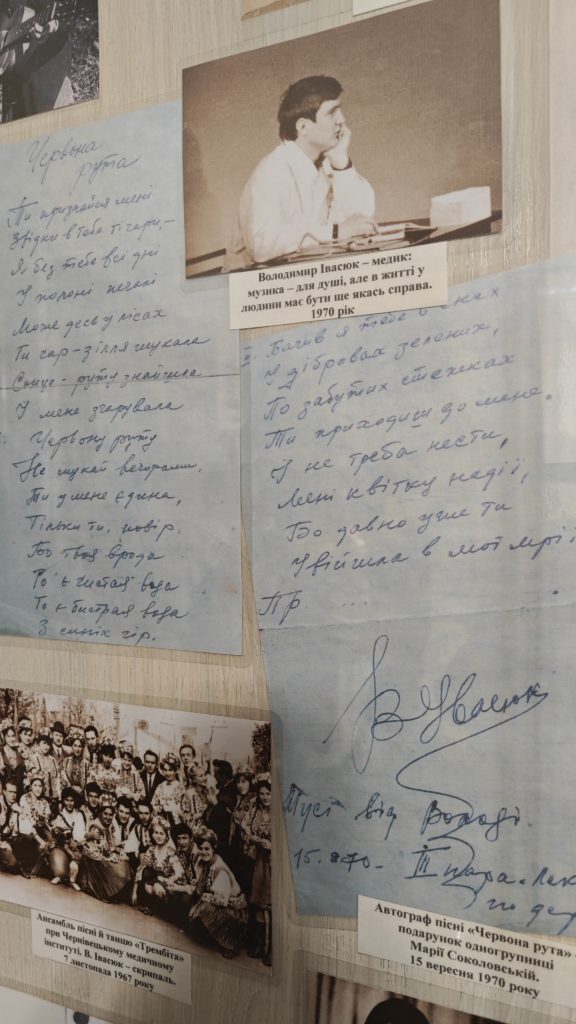 Червона
рута
Ти признайся мені
Звідки в тебе ті чари, –
Я без тебе всі дні
У полоні печалі
Може десь у лісах
Ти чар-зілля шукала
Сонце-руту знайшла
І мене зчарувала
Червону руту
Не шукай вечорами,
Ти у мене єдина,
Тільки ти, повір.
Бо твоя врода
То є чистая вода
То є бистрая вода
З синіх гір.
Володимир Івасюк – медик:
музика – для душі, але в житті у
людини має бути ще якась справа.
1970 рік
Бачив я тебе в снах
У дібровах зелених,
По забутих стежках
Ти приходиш до мене.
І не треба нести,
Мені квітку надії,
Бо давно уже ти
Увійшла в мої мрії
Пр. ....
В Івасюк
Мусі від Володі
15. 70. III пара-Лек
по
Ансамбль пісні й танцю «Трембіта»
при Чернівецькому медичному
інституті. В. Івасюк – скрипаль.
7 листопада 1967 року
Автограф пісні «Червона рута» –
подарунок одногрупниці
Марії Соколовській.
15 вересня 1970 року